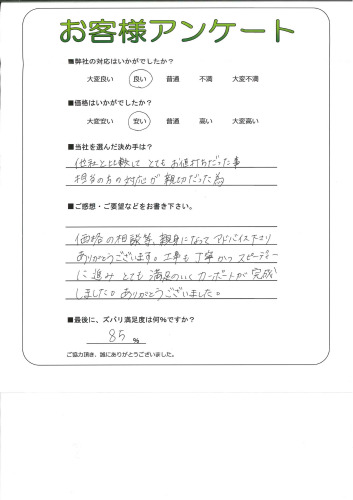 お客様アンケート
■弊社の対応はいかがでしたか?
大変良い 良い 普通 不満 大変不満
■価格はいかがでしたか?
大変安い 安い 普通 高い 大変高い
■当社を選んだ決め手は?
他社と比較してとてもお値打ちだった事
担当の方の対応が親切だった為
■ご感想・ご要望などをお書き下さい。
価格の相談等、親身になってアドバイス下さり
ありがとうございます。工事も丁寧かつスピーディー
に進みとても満足のいくカーポートが完成
しました。ありがとうございました。
■最後に、ズバリ満足度は何%ですか?
85 %
ご協力頂き、誠にありがとうございました。